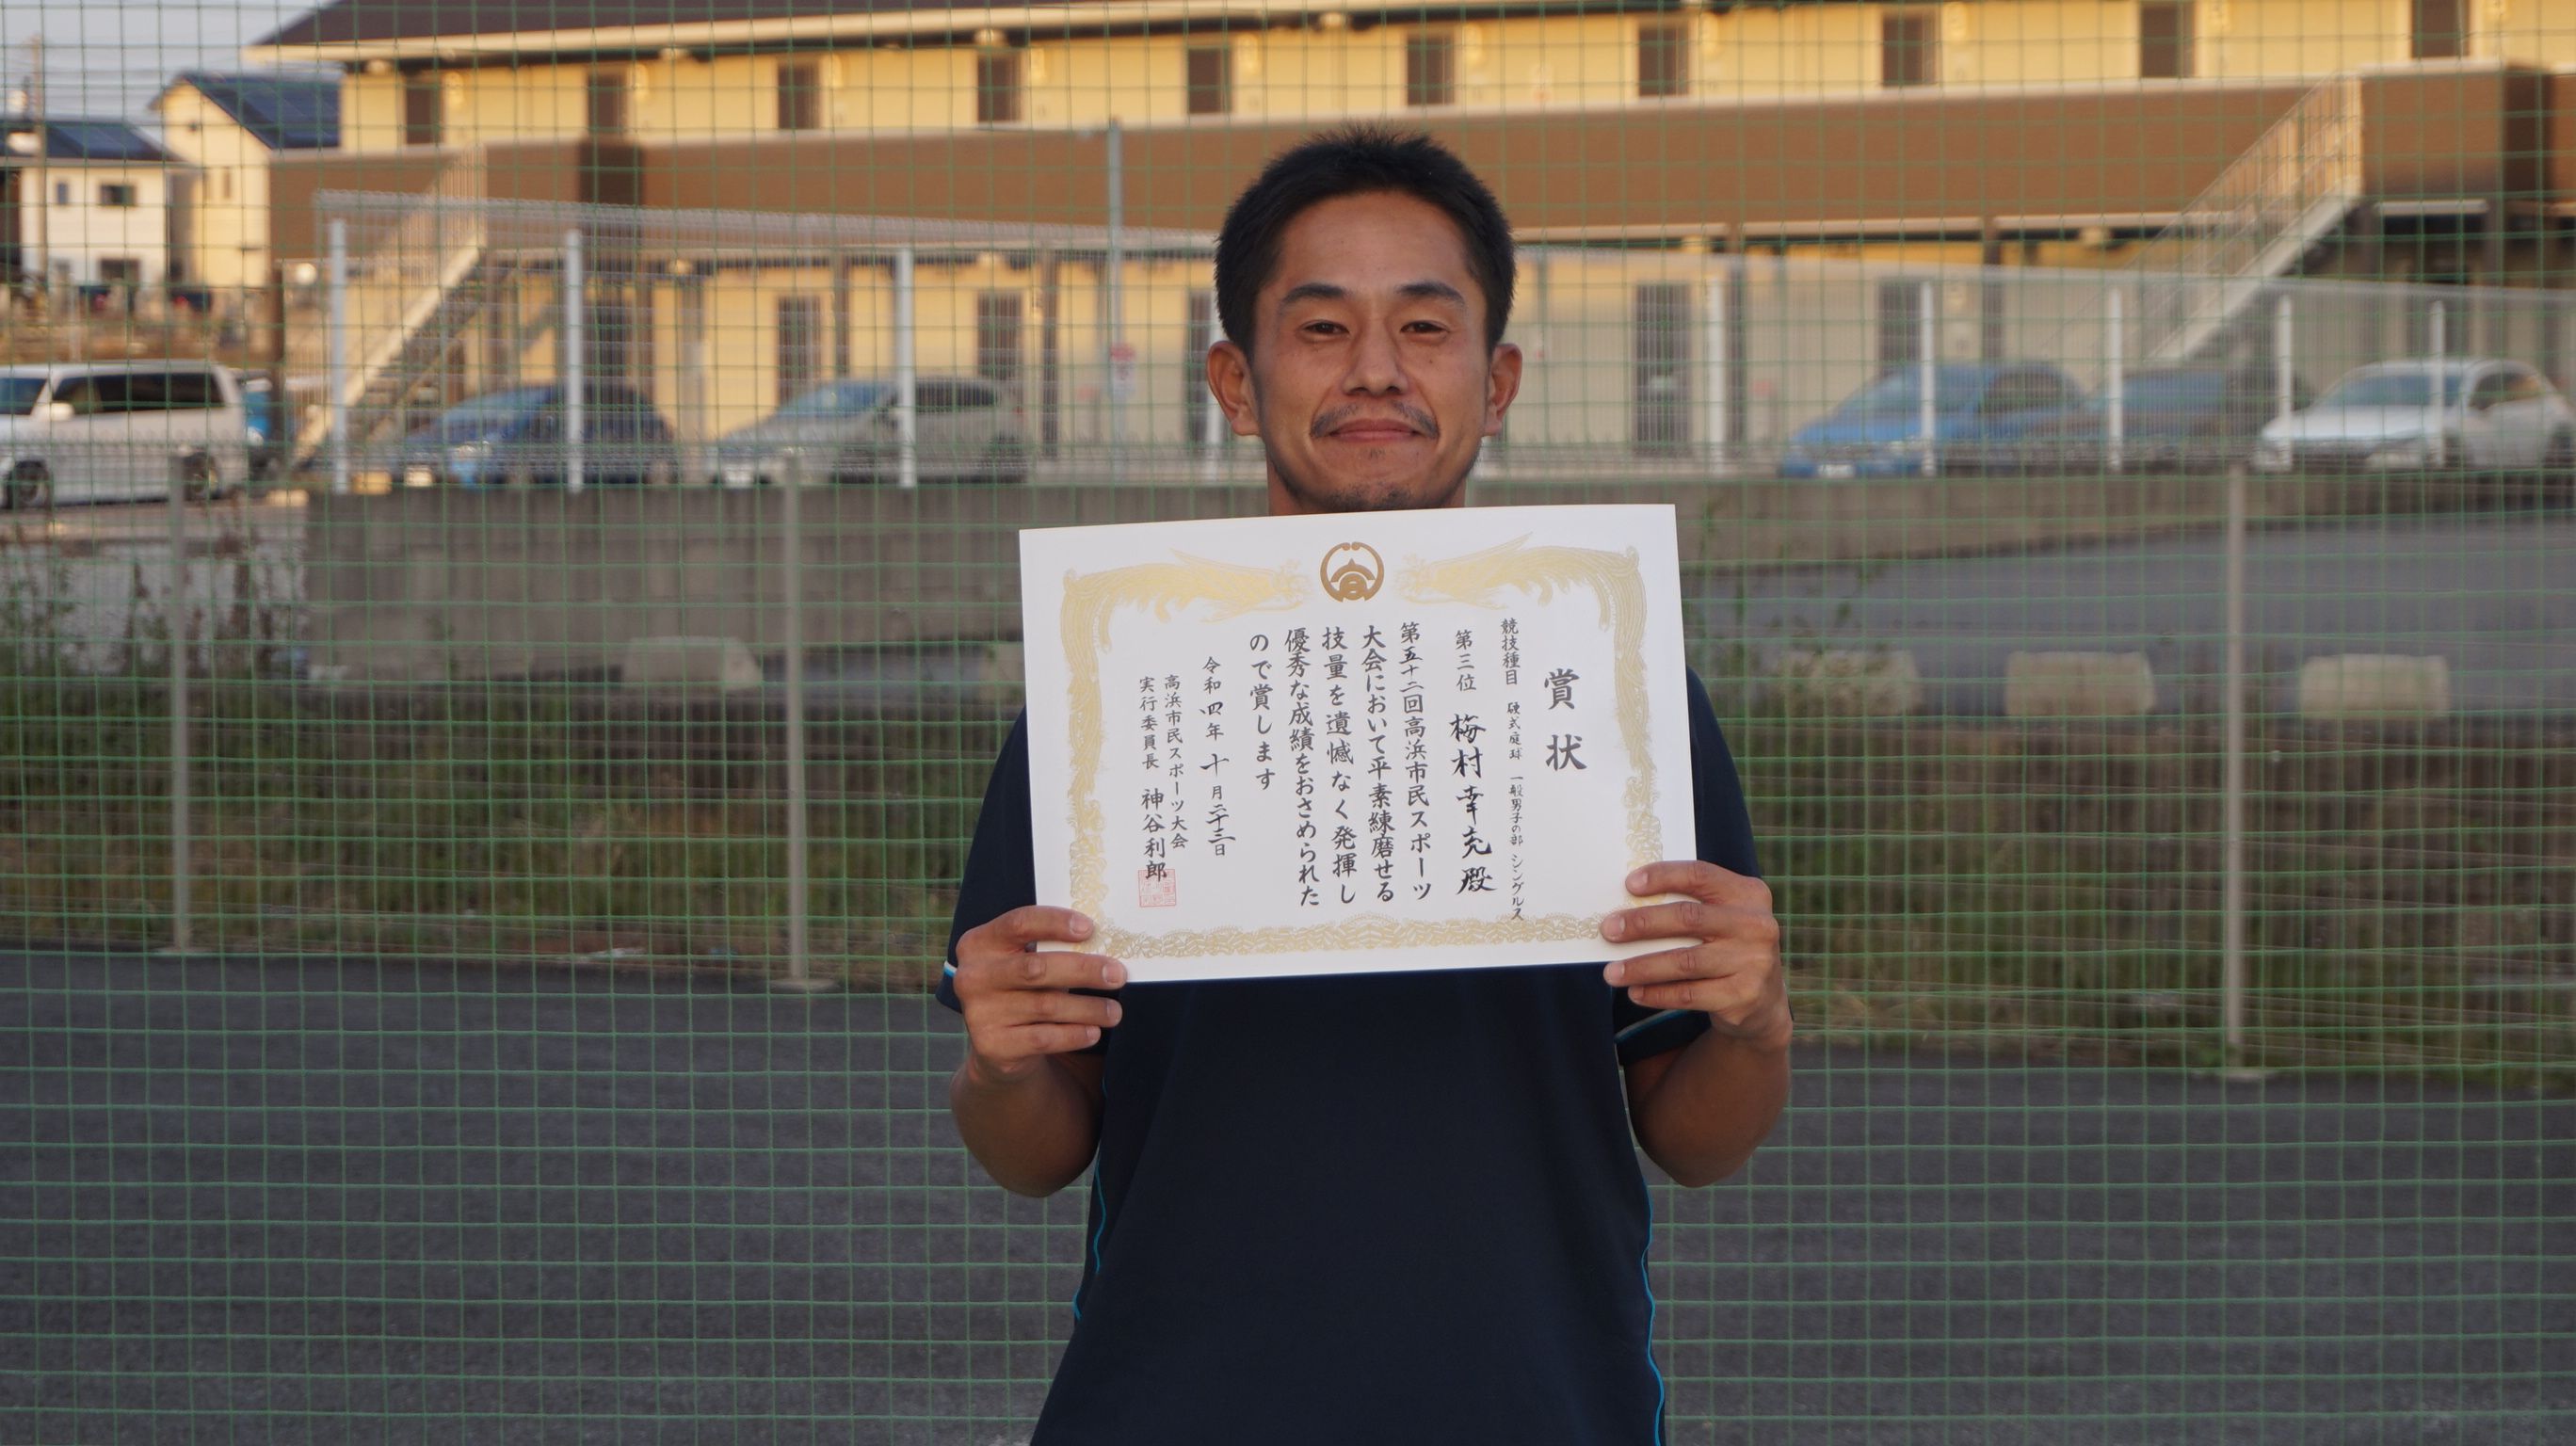 賞状
競技種目 硬式庭球 一般男子の部 シングルス
第三位 梅村幸充殿
第五十二回高浜市民スポーツ
大会において平素練磨せる
技量を遺憾なく発揮し
優秀な成績をおさめられた
ので賞します
令和四年十月二十三日
高浜市民スポーツ大会
実行委員長 神谷利郎